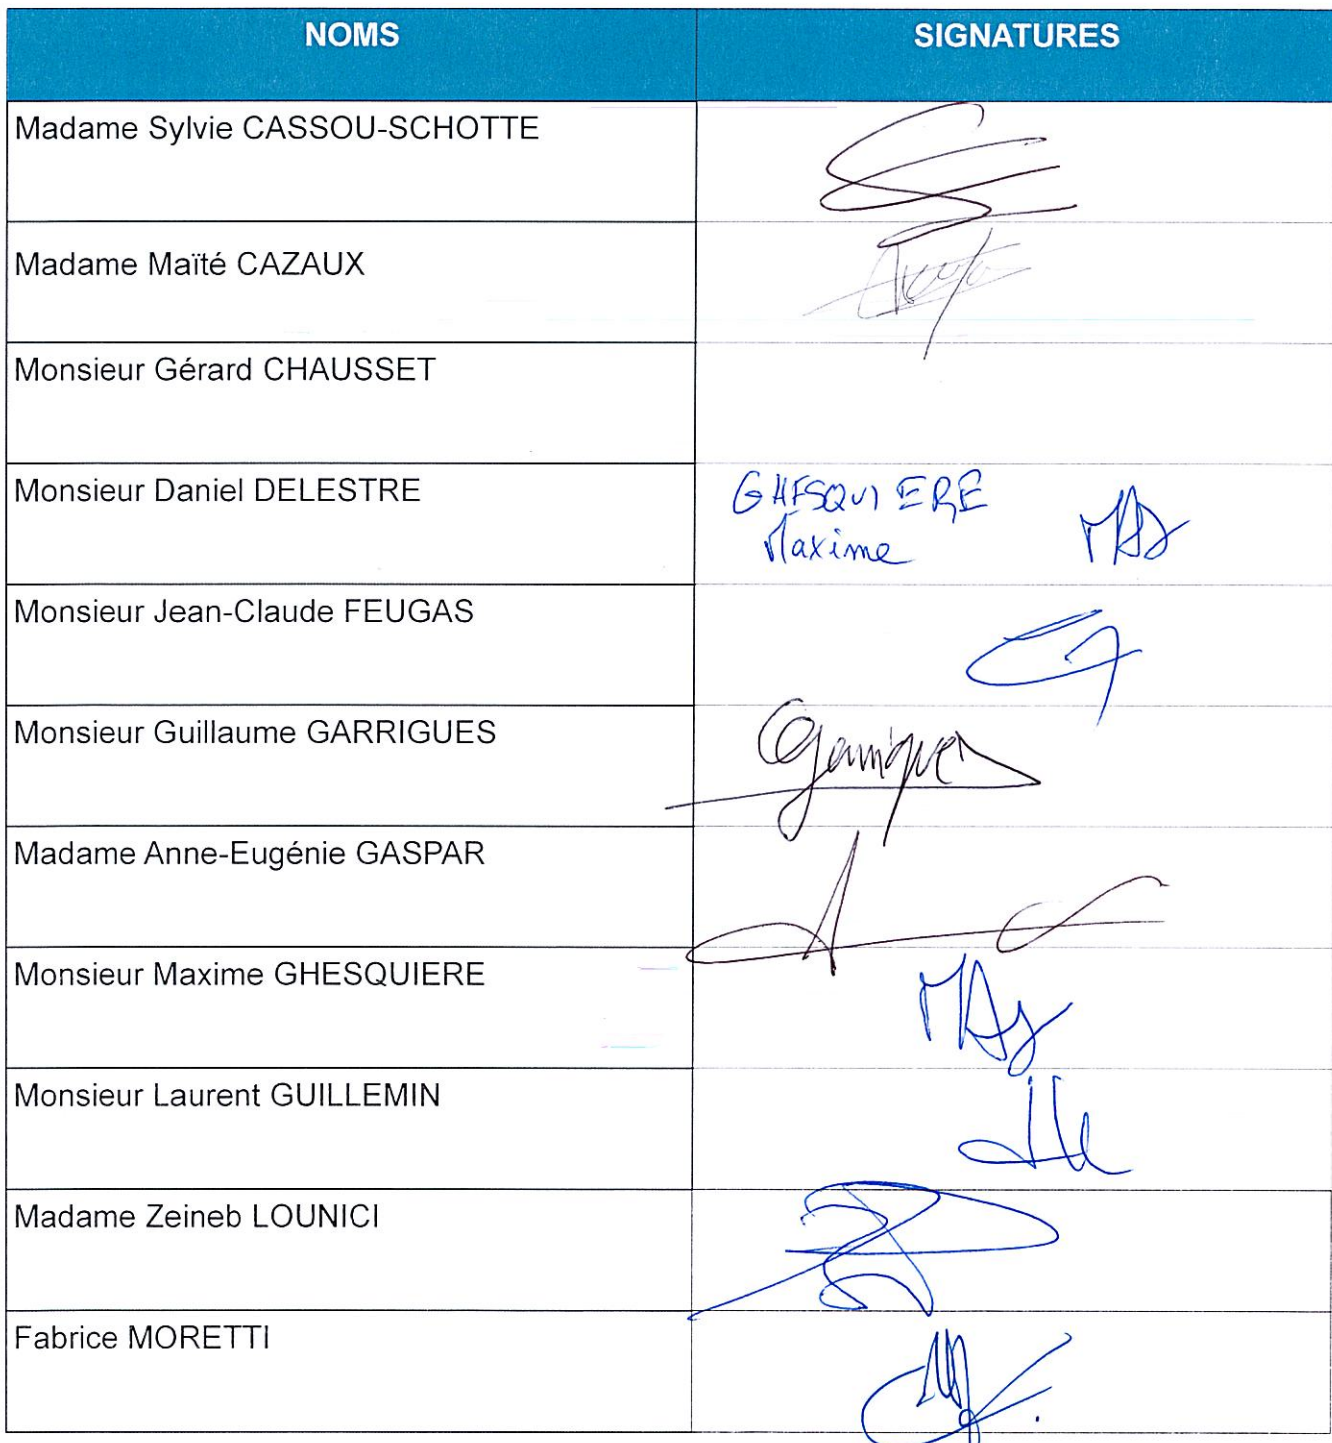 NOMS
SIGNATURES
Madame Sylvie CASSOU-SCHOTTE
Madame Maïté CAZAUX
Monsieur Gérard CHAUSSET
Monsieur Daniel DELESTRE
GHESQUIERE
Maxime
Monsieur Jean-Claude FEUGAS
Monsieur Guillaume GARRIGUES
Garrigues
Madame Anne-Eugénie GASPAR
Monsieur Maxime GHESQUIERE
Monsieur Laurent GUILLEMIN
Madame Zeineb LOUNICI
Fabrice MORETTI